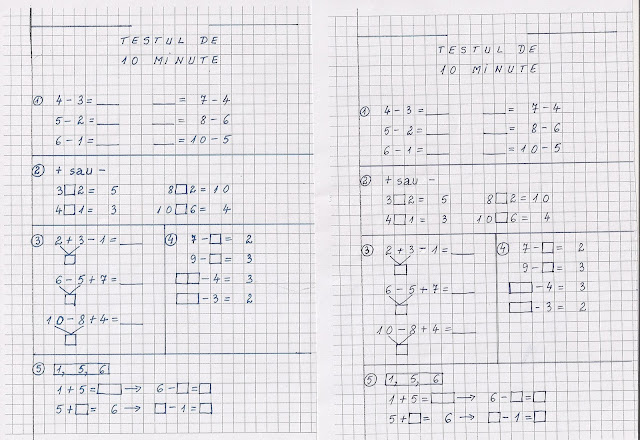 TESTUL DE
10 MINUTE
① 4 - 3 = ___ ___ = 7 - 4
5 - 2 = ___ ___ = 8 - 6
6 - 1 = ___ ___ = 10 - 5
② + sau -
3 □ 2 = 5 8 □ 2 = 10
4 □ 1 = 3 10 □ 6 = 4
③ 2 + 3 - 1 = ___ ④ 7 - □ = 2
9 - □ = 3
6 - 5 + 7 = ___ □ - 4 = 3
□ - 3 = 2
10 - 8 + 4 = ___
⑤ 1, 5, 6
1 + 5 = □ → 6 - □ = □
5 + □ = 6 → □ - 1 = □
TESTUL DE
10 MINUTE
① 4 - 3 = ___ ___ = 7 - 4
5 - 2 = ___ ___ = 8 - 6
6 - 1 = ___ ___ = 10 - 5
② + sau -
3 □ 2 = 5 8 □ 2 = 10
4 □ 1 = 3 10 □ 6 = 4
③ 2 + 3 - 1 = ___ ④ 7 - □ = 2
9 - □ = 3
6 - 5 + 7 = ___ □ - 4 = 3
□ - 3 = 2
10 - 8 + 4 = ___
⑤ 1, 5, 6
1 + 5 = □ → 6 - □ = □
5 + □ = 6 → □ - 1 = □